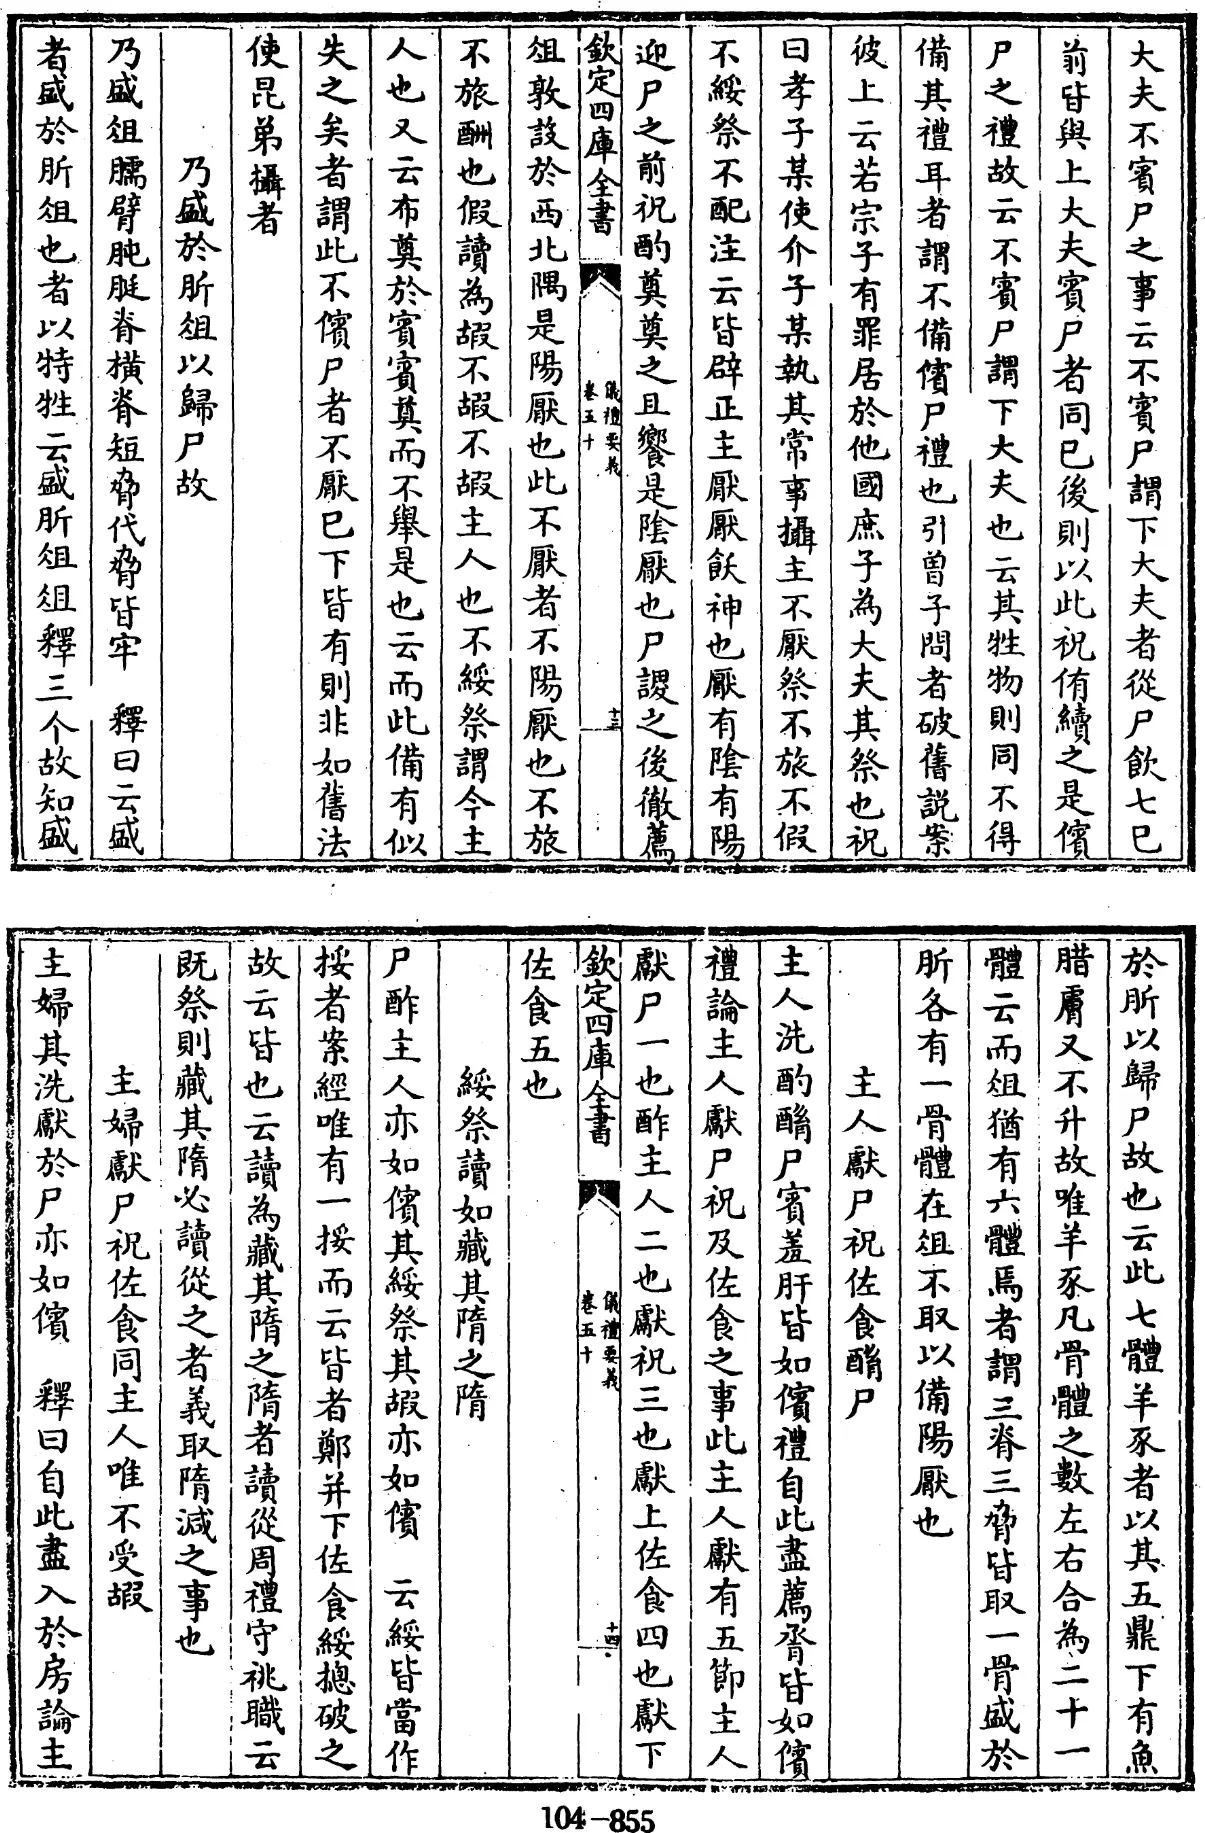 大夫不賓尸之事云不賓尸謂下大夫者從尸飲七已
前皆與上大夫賓尸者同已後則以此祝侑續之是儐
尸之禮故云不賓尸謂下大夫也云其牲物則同不得
備其禮耳者謂不備儐尸禮也引曾子問者破舊説案
彼上云若宗子有罪居於他國庶子為大夫其祭也祝
曰孝子某使介子某執其常事攝主不厭祭不旅不假
不綏祭不配注云皆辟正主厭厭飫神也厭有陰有陽
迎尸之前祝酌奠奠之且饗是陰厭也尸謖之後徹薦
欽定四庫全書
儀禮要義
卷五十
十三
俎敦設於西北隅是陽厭也此不厭者不陽厭也不旅
不旅酬也假讀為嘏不嘏不嘏主人也不綏祭謂今主
人也又云布奠於賓賓奠而不舉是也云而此備有似
失之矣者謂此不儐尸者不厭已下皆有則非如舊法
使昆弟攝者
乃盛於肵俎以歸尸故
乃盛俎臑臂肫脡脊橫脊短脅代脅皆牢 釋曰云盛
者盛於肵俎也者以特牲云盛肵俎俎釋三个故知盛
於肵以歸尸故也云此七體羊豕者以其五鼎下有魚
腊膚又不升故唯羊豕凡骨體之數左右合為二十一
體云而俎猶有六體焉者謂三脊三脅皆取一骨盛於
肵各有一骨體在俎不取以備陽厭也
主人獻尸祝佐食酳尸
主人洗酌酳尸賓羞肝皆如儐禮自此盡薦脀皆如儐
禮論主人獻尸祝及佐食之事此主人獻有五節主人
獻尸一也酢主人二也獻祝三也獻上佐食四也獻下
欽定四庫全書
儀禮要義
卷五十
十四
佐食五也
綏祭讀如藏其隋之隋
尸酢主人亦如儐其綏祭其嘏亦如儐 云綏皆當作
挼者案經唯有一挼而云皆者鄭并下佐食綏摠破之
故云皆也云讀為藏其隋之隋者讀從周禮守祧職云
既祭則藏其隋必讀從之者義取隋減之事也
主婦獻尸祝佐食同主人唯不受嘏
主婦其洗獻於尸亦如儐 釋曰自此盡入於房論主
104-855